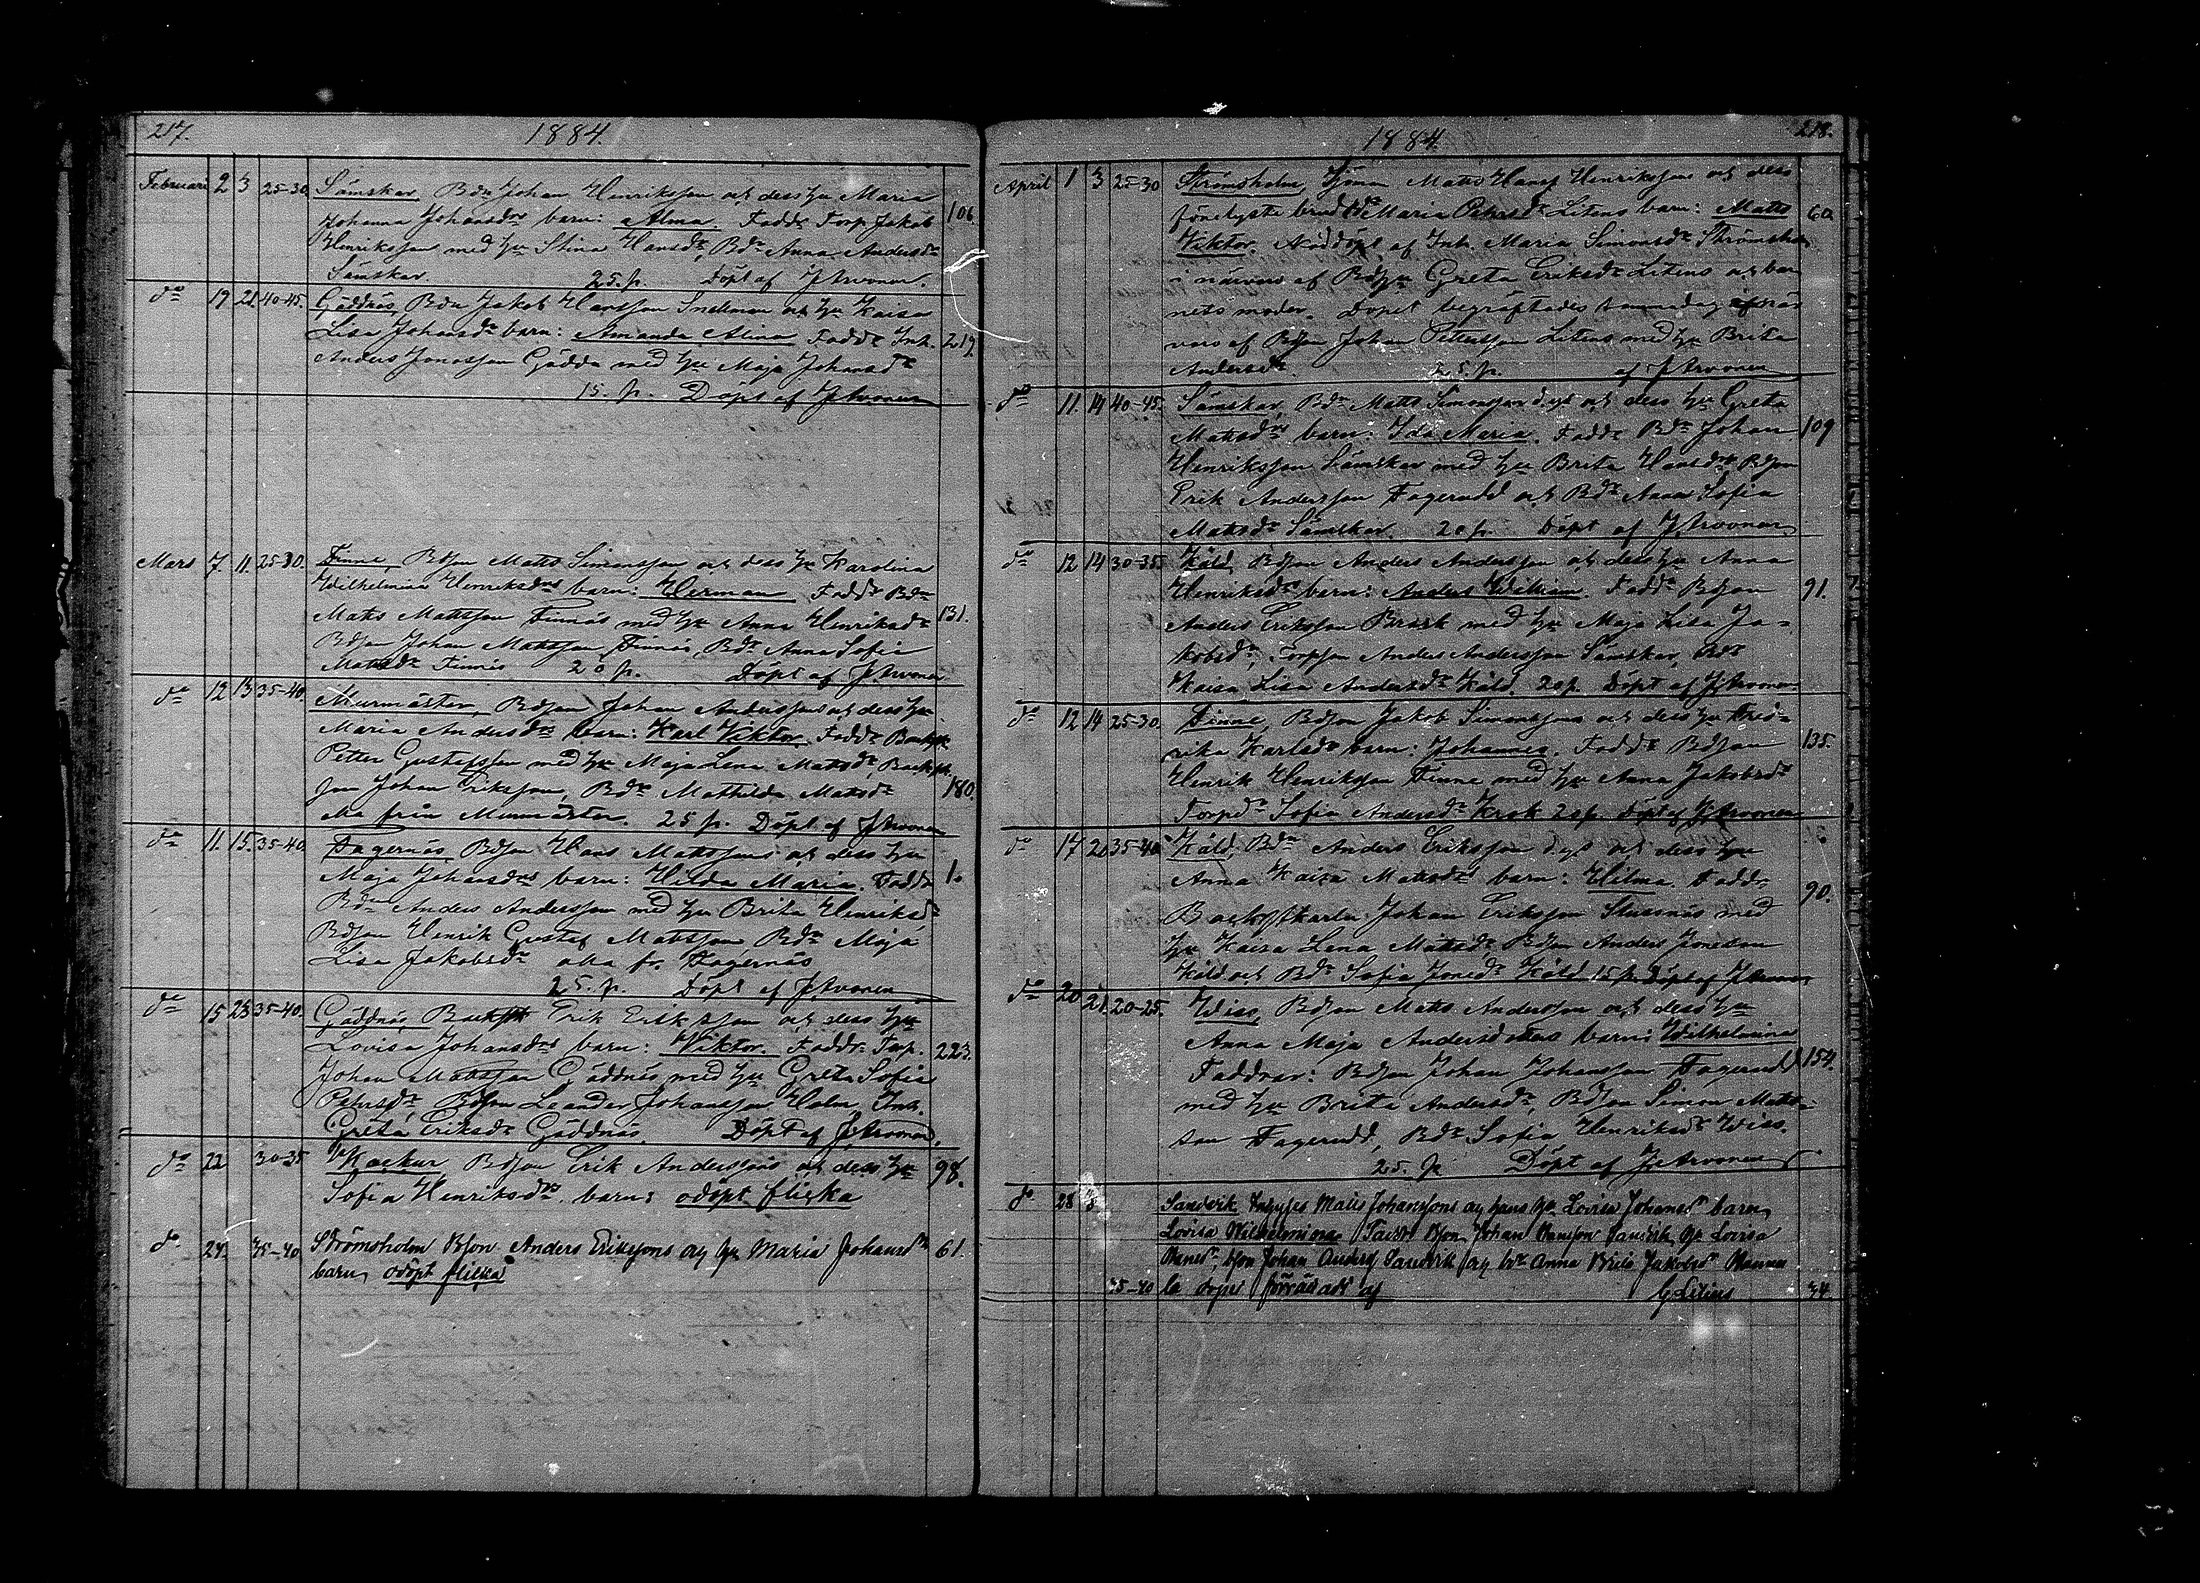 217.
1884.
Februari 2 3 25-30 Sämskar, Bdn Johan Henriksson och dess hu Maria
Johanna Johansdrs barn: Alma. Faddr Torp. Jakob 106
Henriksson med hu Stina Hansdr, Bdr Anna Andersdr
Sämskar 25 p. Döpt af J Arvonen.
do 19 21 40-45. Gäddnäs, Bdn Jakob Hansson Snellman och hu Kaisa
Lisa Johansdr barn: Amanda Alina Faddr Inh. 219
Anders Jonasson Gädda med hu Maja Johansdr
15. p. Döpt af J Arvonen
Mars 7. 11. 25-30. Finne, Bdson Matts Simonsson och dess hu Karolina
Wilhelmina Henriksdrs barn: Herman Faddr Bdn
Matts Mattsson Finnäs med hu Anna Henriksdr 131.
Bdson Johan Mattsson Finnäs, Bdr Anna Sofia
Mattsdr Finnäs 20 p. Döpt af J Arvonen
do 12 13 35-40. Murmäster, Bdson Johan Anderssons och dess hu
Maria Andersdrs barn: Karl Viktor. Faddr
Petter Gustafsson med hu Maja Lena Mattsdr,
son Johan Eriksson, Bdr Mathilda Mattsdr 180.
alla från Murmäster. 25 p. Döpt af J Arvonen
do 11. 15. 35-40. Fagernäs, Bdson Hans Mattssons och dess hu
Maja Johansdrs barn: Hilda Maria. Faddr 1.
Bdn Anders Andersson med hu Brita Henriksdr
Bdson Henrik Gustaf Mattsson Bdr Maja
Lisa Jakobsdr alla fr. Fagernäs
25. p. Döpt af J Arvonen
do 15 23 35-40. Gäddnäs, Erik Eriksson och dess hu
Lovisa Johansdrs barn: Viktor. Faddr. Torp. 223.
Johan Mattsson Gäddnäs med hu Greta Sofia
Petersdr Bdson Leander Johansson Holm, Inh.
Greta Eriksdr Gäddnäs. Döpt af J Arvonen.
do 22 30-35 Backur, Bdson Erik Anderssons och dess hu 98.
Sofia Henriksdrs barn: odöpt flicka
do. 24. 35-40 Strömsholm Bson Anders Erikssons og hu Maria Johansdrs 61.
barn, odöpt flicka
218.
1884.
April 1 3 25-30 Strömsholm, Matts Hansson Henrikssons och dess
Maria Petersdr Litens barn: Matts 60
Viktor. Nöddöpt af Inh. Maria Simonsdr Strömsholm
i närvaro af Greta Eriksdr Litens och bar
nets moder. Dopet begräftades samma dag i när
varo af Bdson Johan Pettersson Litens med hu Brita
Andersdr. 25. p. af J Arvonen
do 11. 14 40-45. Sämskar, Bdn Matts Simonsson och dess hu Greta
Mattsdrs barn: Ida Maria. Faddr Bdn Johan 109
Henriksson Sämskar med hu Brita Hansdr Bdson
Erik Andersson Fagerudd och Bdr Anna Sofia
Mattsdr Sämskar. 20 p. Döpt af J Arvonen
do 12 14 30-35. Käld, Bdson Anders Andersson och dess hu Anna
Henriksdrs barn: Anders William. Faddr Bdson 91.
Anders Eriksson Brask med hu Maja Lisa Ja-
kobsdr, Torpson Anders Andersson Sämskar, Bdr
Kaisa Lisa Andersdr Käld. 20 p. Döpt af J Arvonen
do 12 14 25-30. Finne, Bdson Jakob Simonssons och dess hu Fred-
rika Karlsdrs barn: Johannes. Faddr Bdson 135.
Henrik Henriksson Finne med hu Anna Jakobsdr
Torpdr Sofia Andersdr Krok 20 p. Döpt af J Arvonen
do 17 20 35-40 Käld, Bdn Anders Eriksson och dess hu
Anna Kaisa Mattsdrs barn: Hilma. Faddr 90.
Johan Eriksson Stussnäs med
hu Kaisa Lena Mattsdr, Bdson Anders Jonsson
Käld och Bdr Sofia Jonsdr Käld 15 p. Döpt af J Arvonen
do 20 21 20-25. Wiss, Bdson Matts Andersson och dess hu
Anna Maja Andersdotters barn: Wilhelmina
Faddrar: Bdson Johan Johansson Fagerudd 154.
med hu Brita Andersdr, Bdson Simon Matts-
son Fagerudd, Bdr Sofia Henriksdr Wiss.
25. p Döpt af J Arvonen
do 28 Sandvik Matts Johanssons og hans hu Lovisa Johansdrs barn,
Lovisa Wilhelmina. Faddr Bson Johan Hansson Sandvik hu Lovisa
Hansdr, bson Johan Anderss Sandvik og bdr Anna Brita Jakobsdr
35-40 af G Litens 34.